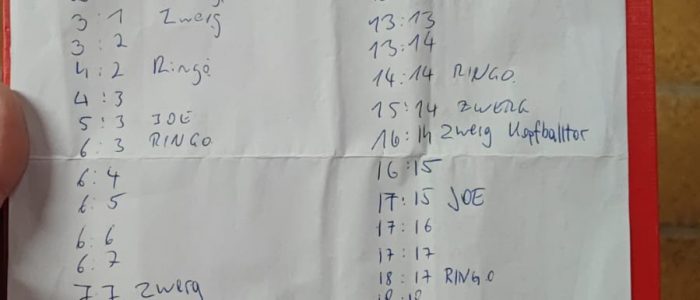 3:1 Zwerg
3:2
4:2 Ringo
4:3
5:3 JOE
6:3 RINGO
6:4
6:5
6:6
6:7
7 7 Zwerg
13:13
13:14
14:14 RINGO
15:14 ZWERG
16:14 Zwerg Kopfballtor
16:15
17:15 JOE
17:16
17:17
18:17 RINGO